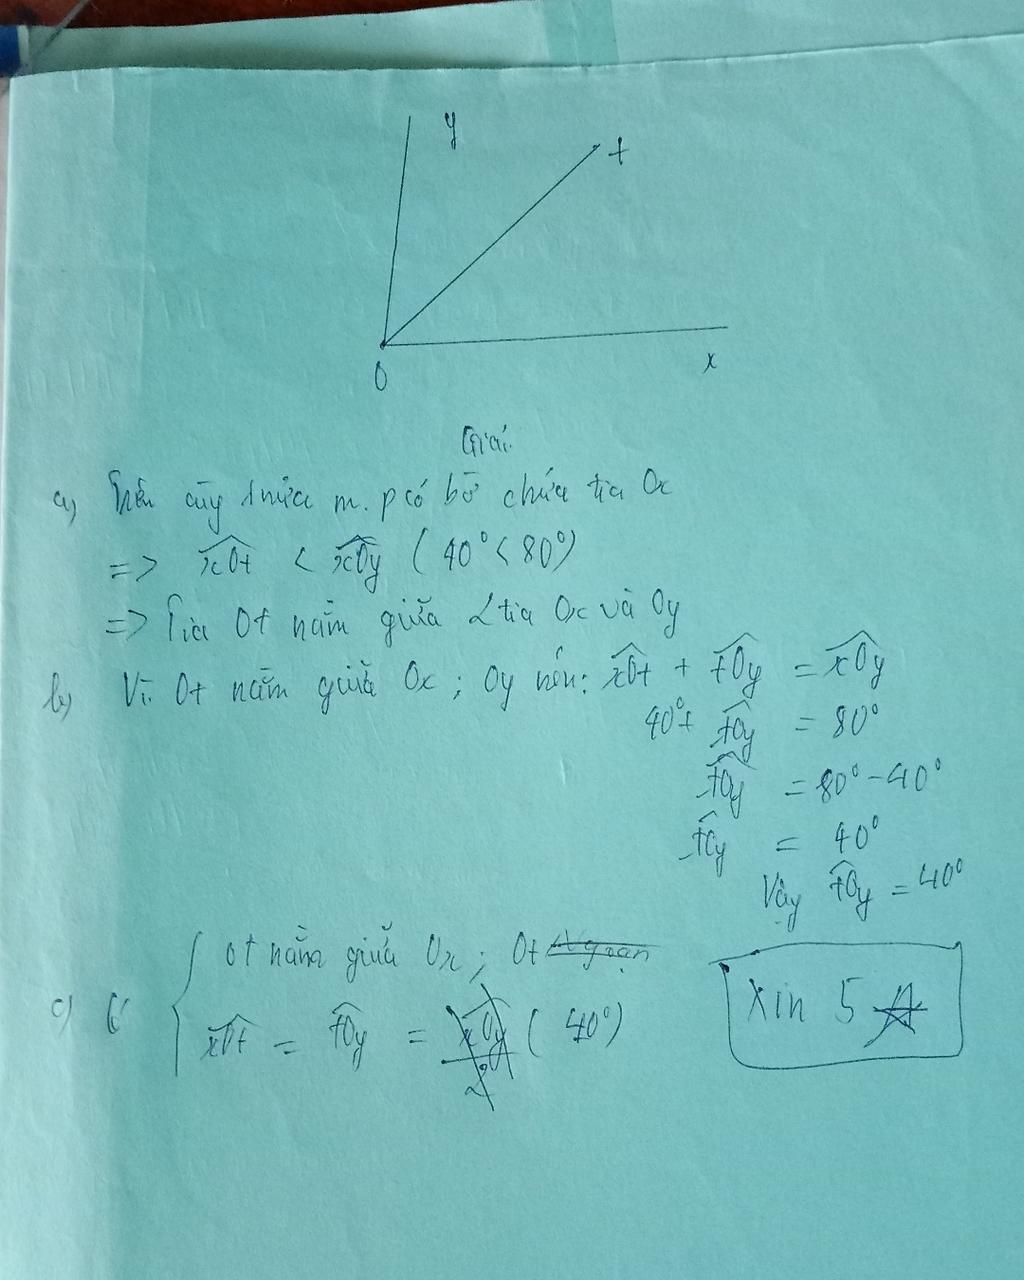 y
t
O
x
Giải
a) Trên cùng 1 nửa m.p có bờ chứa tia Ox
=> xOt < xOy ( 40° < 80°)
=> Tia Ot nằm giữa 2 tia Ox và Oy
b) Vì Ot nằm giữa Ox ; Oy nên: xOt + tOy = xOy
40° + tOy = 80°
tOy = 80° - 40°
tOy = 40°
Vậy tOy = 40°
c) Có { Ot nằm giữa Ox ; Ot
xOt = tOy = xOy/2 ( 40°)
Xin 5 ☆